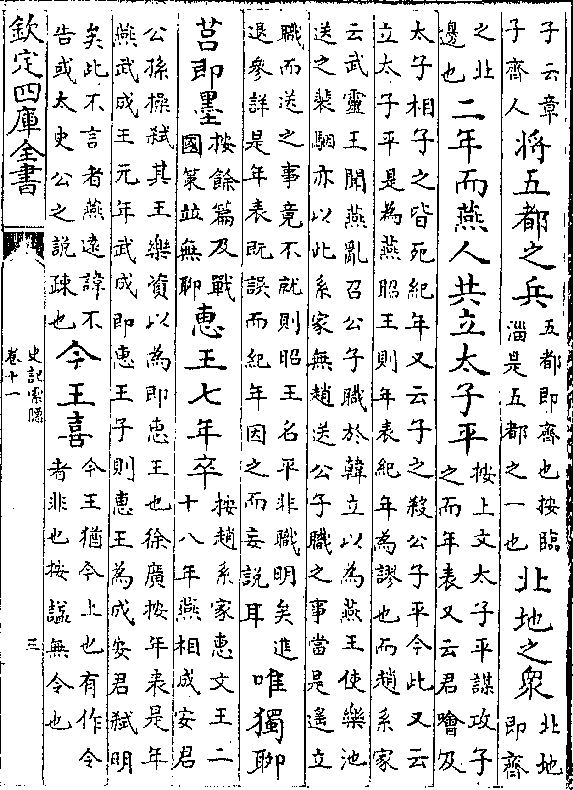 子云章
子齊人
將五都之兵
五都即齊也按臨
淄是五都之一也
北地之衆
北地
即齊
之北
邊也
二年而燕人共立太子平
按上文太子平謀攻子
之而年表又云君噲及
太子相子之皆死紀年又云子之殺公子平今此又云
立太子平是為燕昭王則年表紀年為謬也而趙系家
云武靈王聞燕亂召公子職於韓立以為燕王使樂池
送之裴駰亦以此系家無趙送公子職之事當是遥立
職而送之事竟不就則昭王名平非職明矣進
退參詳是年表既誤而紀年因之而妄説耳
唯獨聊
莒即墨
按餘篇及戰
國策竝無聊
惠王七年卒
按趙系家惠文王二
十八年燕相成安君
公孫操弑其王樂資以為即惠王也徐廣按年表是年
燕武成王元年武成即惠王子則惠王為成安君弑明
矣此不言者燕遠諱不
告或太史公之説疎也
今王喜
今王猶今上也有作令
者非也按諡無令也
欽定四庫全書
史記索隱
卷十一
三